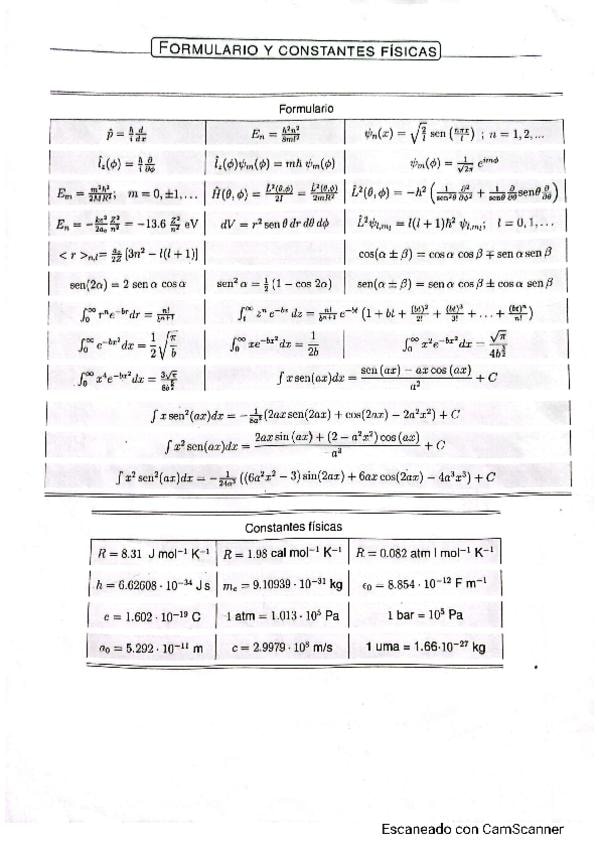 FORMULARIO Y CONSTANTES FÍSICAS
Formulario
p̂ = ħ/i d/dx | Eₙ = h²n²/8ml² | ψₙ(x) = √(2/l) sen (nπx/l) ; n = 1, 2, ...
l̂_z(ϕ) = ħ/i ∂/∂ϕ | l̂_z(ϕ)ψₘ(ϕ) = mħ ψₘ(ϕ) | ψₘ(ϕ) = 1/√2π e^{imϕ}
Eₘ = m²ħ²/2MR²; m = 0, ±1, ... | Ĥ(θ, ϕ) = L̂²(θ,ϕ)/2I = L̂²(θ,ϕ)/2mR² | L̂²(θ, ϕ) = −ħ² (1/sen²θ ∂²/∂ϕ² + 1/senθ ∂/∂θ senθ ∂/∂θ)
Eₙ = − Z²/n² = −13.6 Z²/n² eV | dV = r² sen θ dr dθ dϕ | L̂²ψ_{l,m_l} = l(l + 1)ħ² ψ_{l,m_l}; l = 0, 1, ...
< r >_{n,l} = a₀/2Z [3n² − l(l + 1)] | cos(α ± β) = cos α cos β ∓ sen α sen β
sen(2α) = 2 sen α cos α | sen² α = ½ (1 − cos 2α) | sen(α ± β) = sen α cos β ± cos α sen β
∫₀^∞ rⁿe^{−br}dr = n!/b^{n+1} | ∫ₜ^∞ zⁿ e^{−bz} dz = n!/b^{n+1} e^{−bt} (1 + bt + (bt)²/2! + (bt)³/3! + ... + (bt)ⁿ/n!)
∫₀^∞ e^{−bx²}dx = 1/2 √(π/b) | ∫₀^∞ xe^{−bx²}dx = 1/2b | ∫₀^∞ x²e^{−bx²}dx = √π/4b^{3/2}
∫₀^∞ x⁴e^{−bx²}dx = | ∫ x sen(ax)dx = (sen (ax) − ax cos (ax))/a² + C
∫ x sen²(ax)dx = −1/8a² (2ax sen(2ax) + cos(2ax) − 2a²x²) + C
∫ x² sen(ax)dx = (2ax sin (ax) + (2 − a²x²) cos (ax))/a³ + C
∫ x² sen²(ax)dx = −1/24a³ ((6a²x² − 3) sin(2ax) + 6ax cos(2ax) − 4a³x³) + C
Constantes físicas
R = 8.31 J mol⁻¹ K⁻¹ | R = 1.98 cal mol⁻¹ K⁻¹ | R = 0.082 atm l mol⁻¹ K⁻¹
h = 6.62608 · 10⁻³⁴ J s | mₑ = 9.10939 · 10⁻³¹ kg | ϵ₀ = 8.854 · 10⁻¹² F m⁻¹
e = 1.602 · 10⁻¹⁹ C | 1 atm = 1.013 · 10⁵ Pa | 1 bar = 10⁵ Pa
a₀ = 5.292 · 10⁻¹¹ m | c = 2.9979 · 10⁸ m/s | 1 uma = 1.66·10⁻²⁷ kg
Escaneado con CamScanner